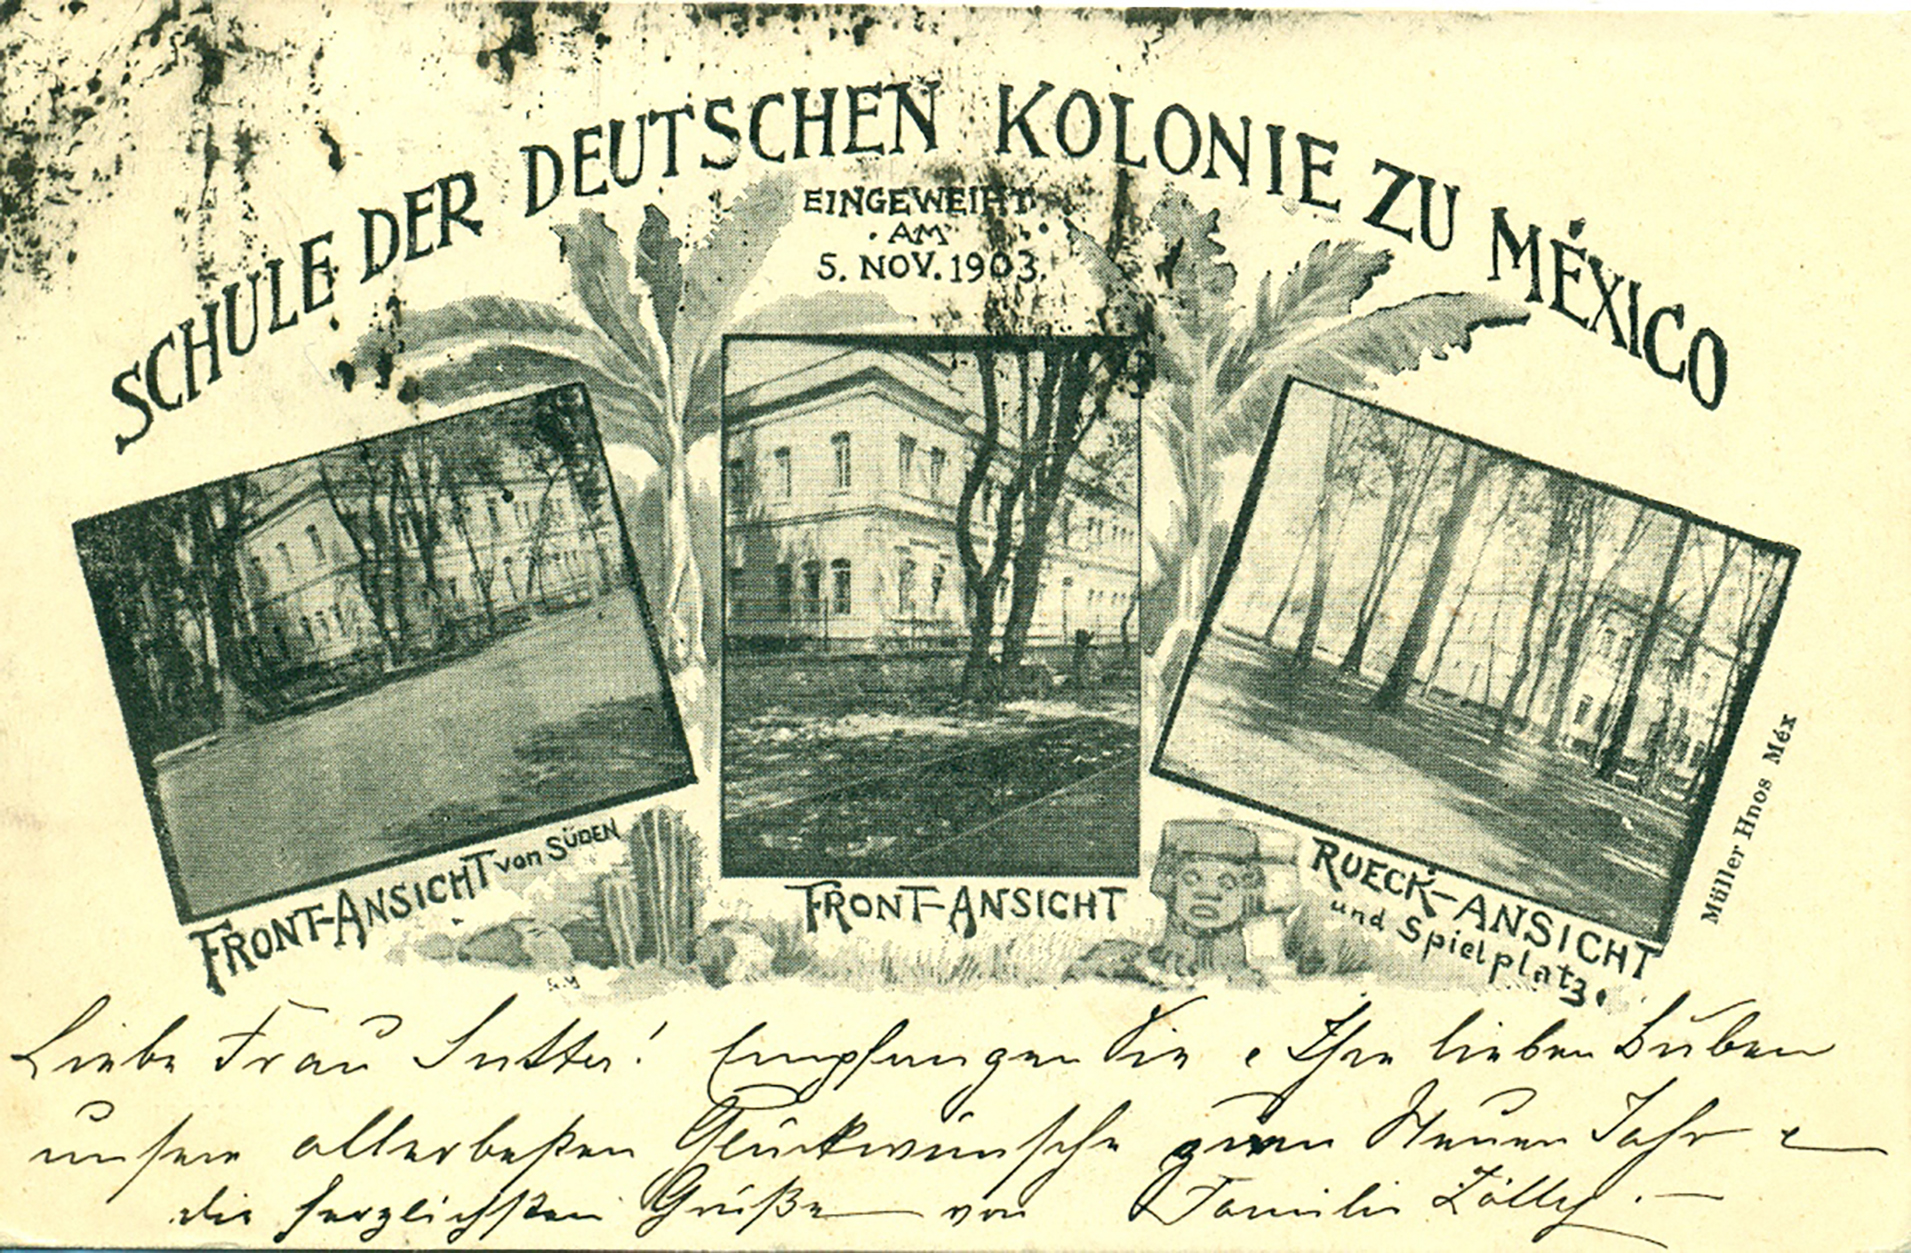 SCHULE DER DEUTSCHEN KOLONIE ZU MÉXICO
EINGEWEIHT
· AM ·
5. NOV. 1903.
FRONT-ANSICHT von SÜDEN
FRONT-ANSICHT
RUECK-ANSICHT
und Spielplatz.
Müller Hnos Méx
Liebe Frau Sutter! Empfangen Sie & Ihre lieben Buben
unsere allerbesten Glückwünsche zum Neuen Jahr &
die herzlichsten Grüße von Familie Zölly.